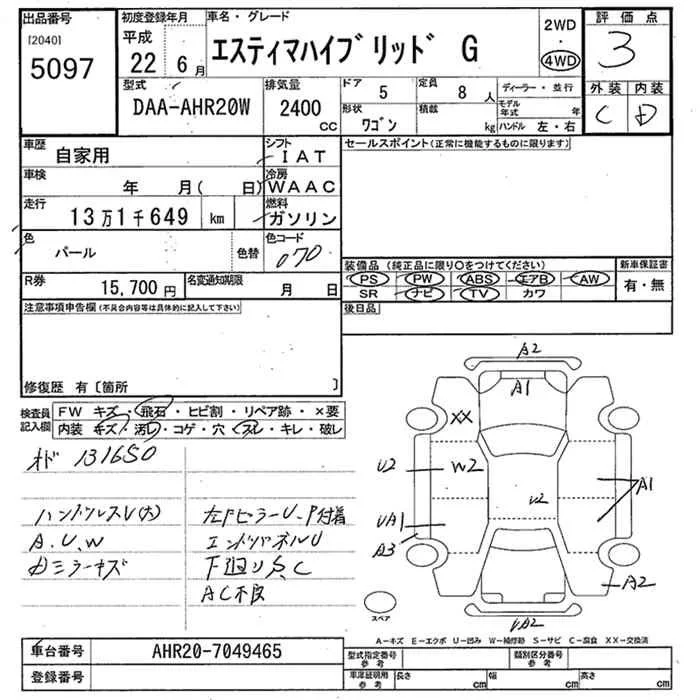 出品番号
[2040]
5097
初度登録年月
平成
22 6月
車名・グレード
エスティマハイブリッド G
2WD
・
4WD
評価点
3
外装 内装
C D
型式
DAA-AHR20W
排気量
2400
cc
ドア
5
定員
8 人
形状
ワゴン
積載
kg
ディーラー・並行
モデル年式 年
ハンドル 左・右
車歴
自家用
シフト
IAT
車検
年 月( 日)
冷房
WAAC
走行
13万1千649 km
燃料
ガソリン
色
パール
色替
色コード
070
R券
15,700円
名変通知期限
月 日
セールスポイント(正常に機能するものに限ります)
装備品 (純正品に限り〇をつけてください)
PS PW ABS エアB AW
SR ナビ TV カワ
新車保証書
有・無
後日品
注意事項申告欄(不具合内容等は具体的に記入して下さい)
修復歴 有〔箇所 〕
検査員記入欄
FW キズ・飛石・ヒビ割・リペア跡・×要
内装 キズ・汚レ・コゲ・穴・スレ・キレ・破レ
メド 131650
ハンドルスレ(大)
A.U.W
左Fピラー U.P付着
エンドパネルU
下廻りS.C
AC不良
A2
A1
XX
U2
W2
U2
A1
UA1
A3
A2
UA2
スペア
A-キズ E-エクボ U-凹み W-補修跡 S-サビ C-腐食 XX-交換済
車台番号
AHR20-7049465
登録番号
型式指定番号
参考
類別区分番号
参考
車庫証明用
参考
長さ cm
幅 cm
高さ cm